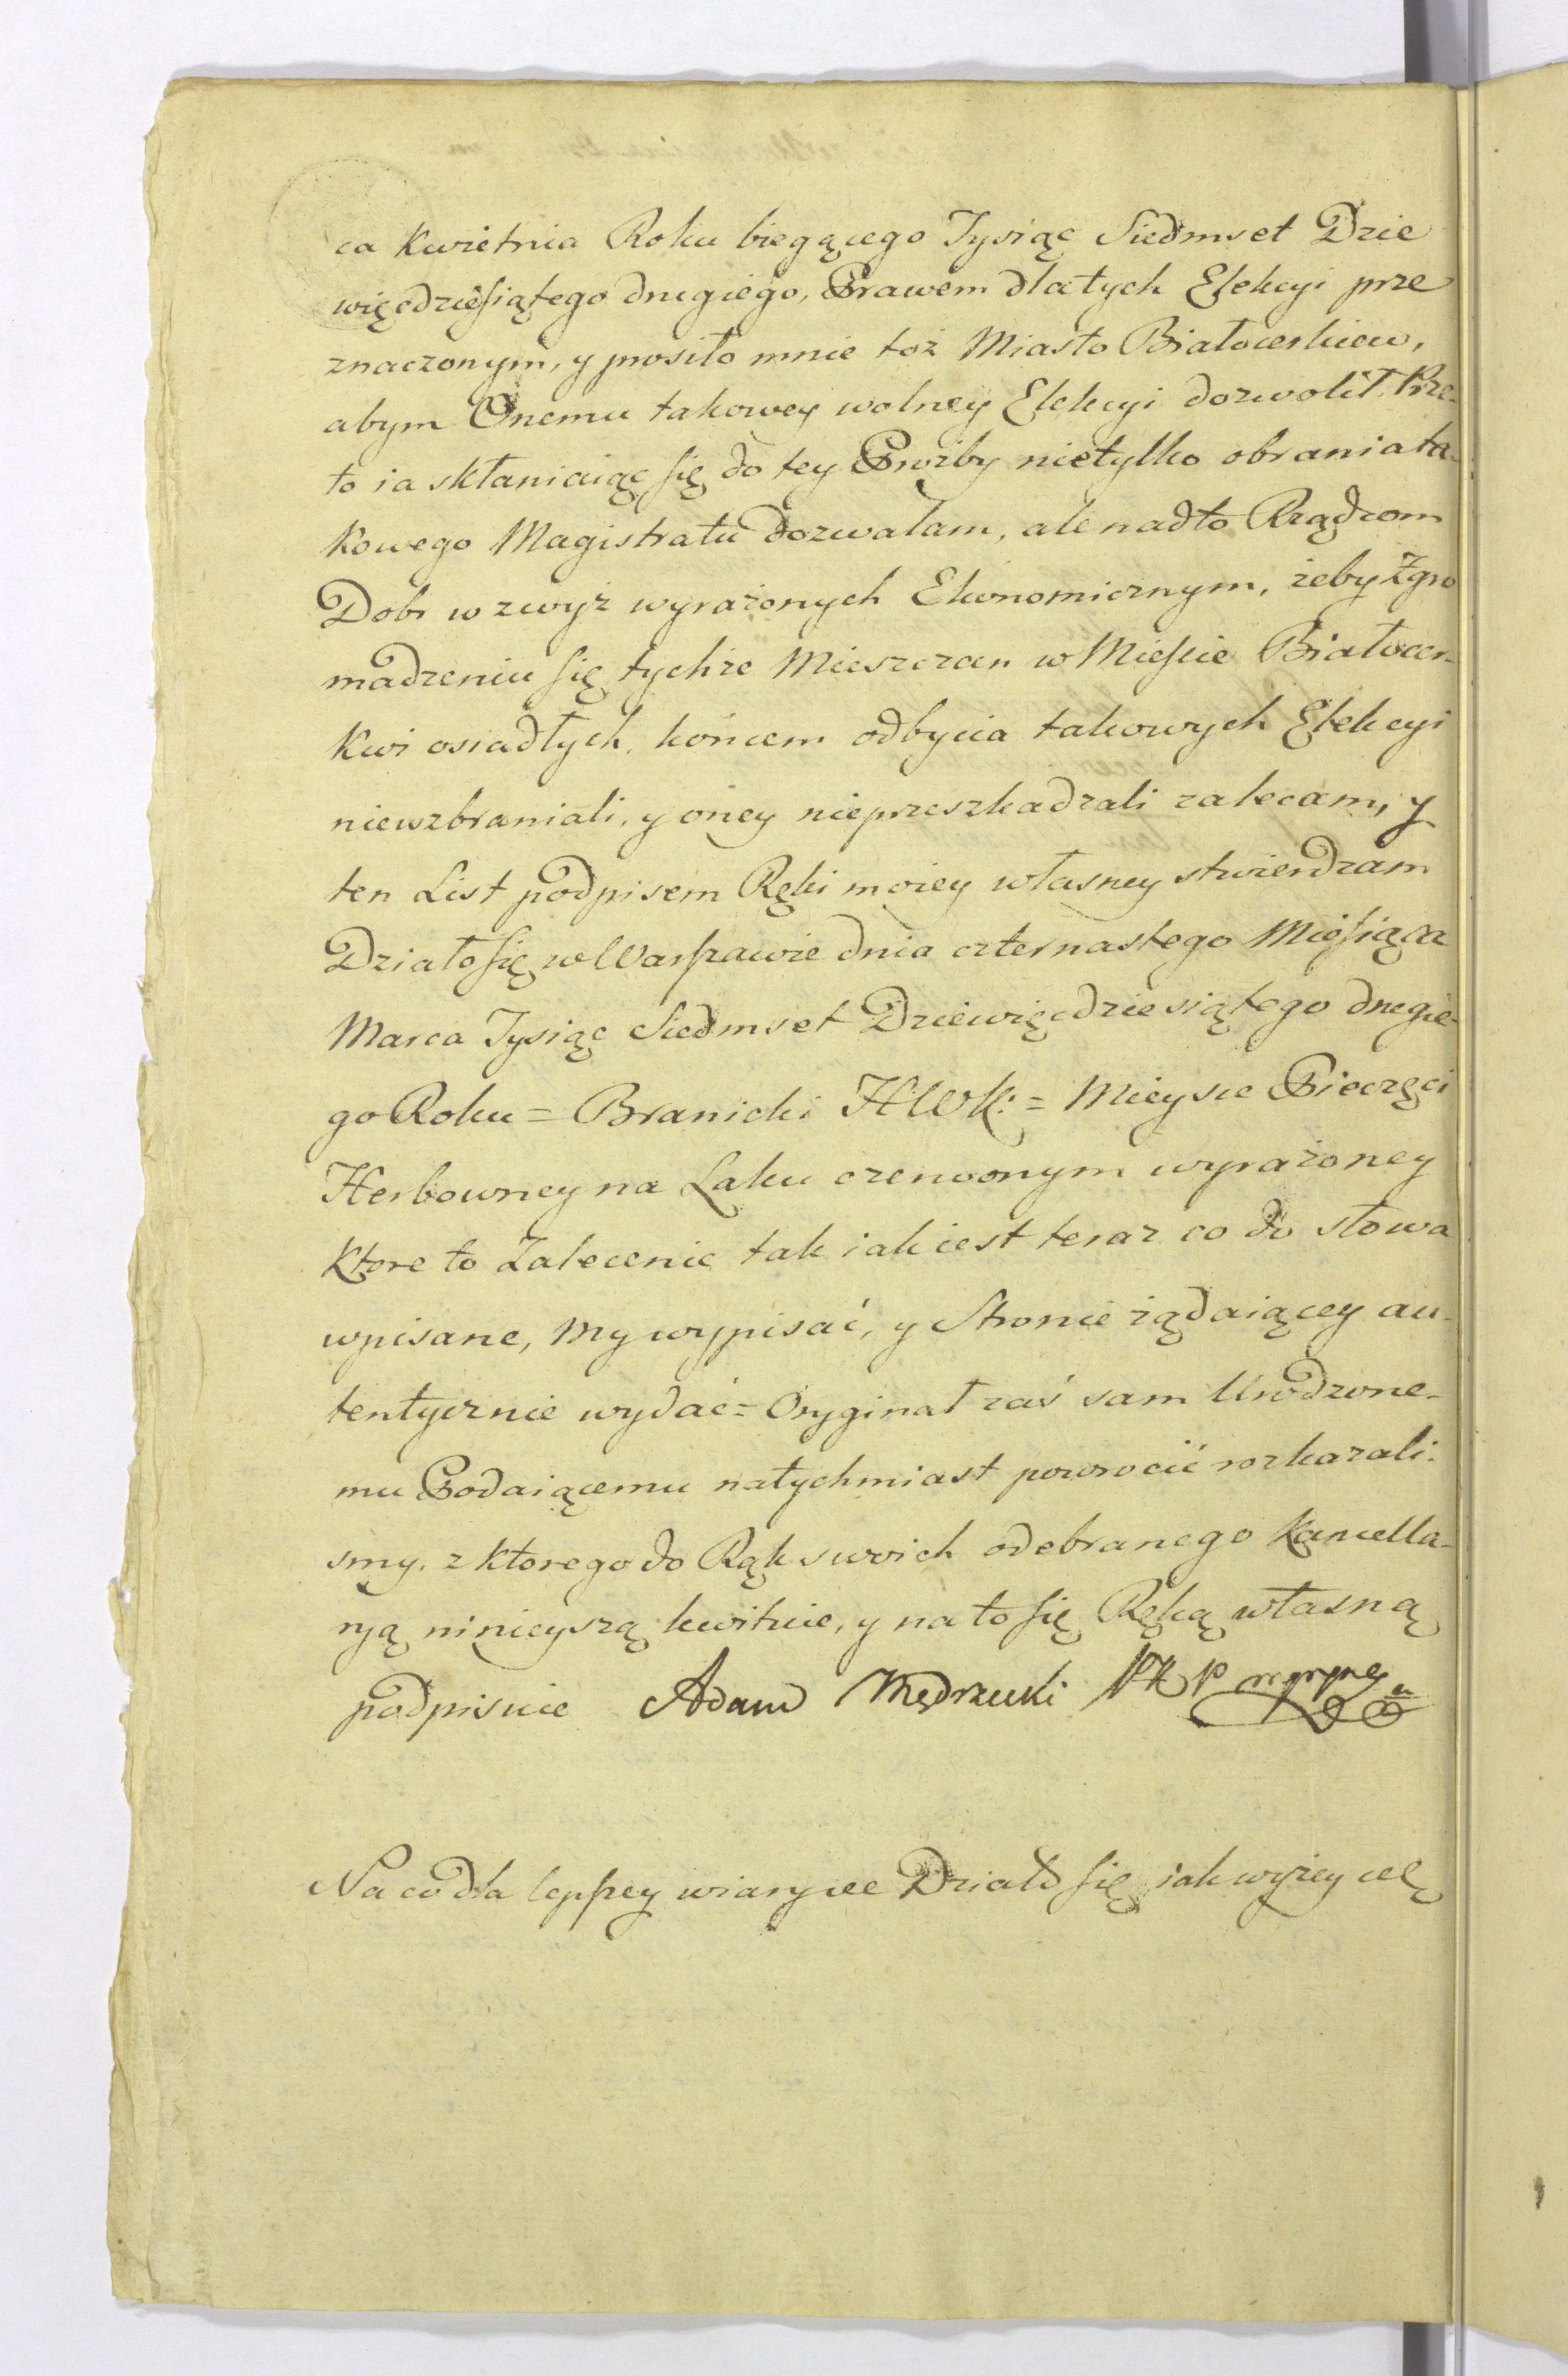 ca Kwietnia Roku biegącego Tysiąc Siedmset Dzie
więcdziesiątego drugiego, Prawem dla tych Elekcyi prze
znaczonym, y prosiło mnie toż Miasto Białocerkiew,
abym Onemu takowey wolney Elekcyi dozwolił. Prze-
to ia skłaniaiąc się do tey Proźby nietylko obrania ta-
kowego Magistratu dozwalam, ale nadto Rządcom
Dobr w zwyż wyrażonych Ekonomicznym, żeby Zgro
madzeniu się tychże Mieszczan w Mieście Białocer-
kwi osiadłych, końcem odbycia takowych Elekcyi
niewzbraniali, y oney nieprzeszkadzali zalecam, y
ten List podpisem Ręki moiey własney stwierdzam
Działo się w Warszawie dnia czternastego Miesiąca
Marca Tysiąc Siedmset Dziewięcdziesiątego drugie-
go Roku = Branicki HWK: = Mieysce Pieczęci
Herbowney na Laku czerwonym wyrażoney
Ktore to Zalecenie tak iak iest teraz co do słowa
wpisane, My wypisać, y Stronie żądaiącey au-
tentycznie wydać = Oryginał zaś sam Urodzone-
mu Podaiącemu natychmiast powrocić rozkazali-
smy, z ktorego do Rąk swoich odebranego Kancella-
ryą ninieyszą kwituie, y na to się Ręką własną
podpisuie Adam Mędrzecki
Na co dla lepszey wiary ece Działo się iak wyżey ece